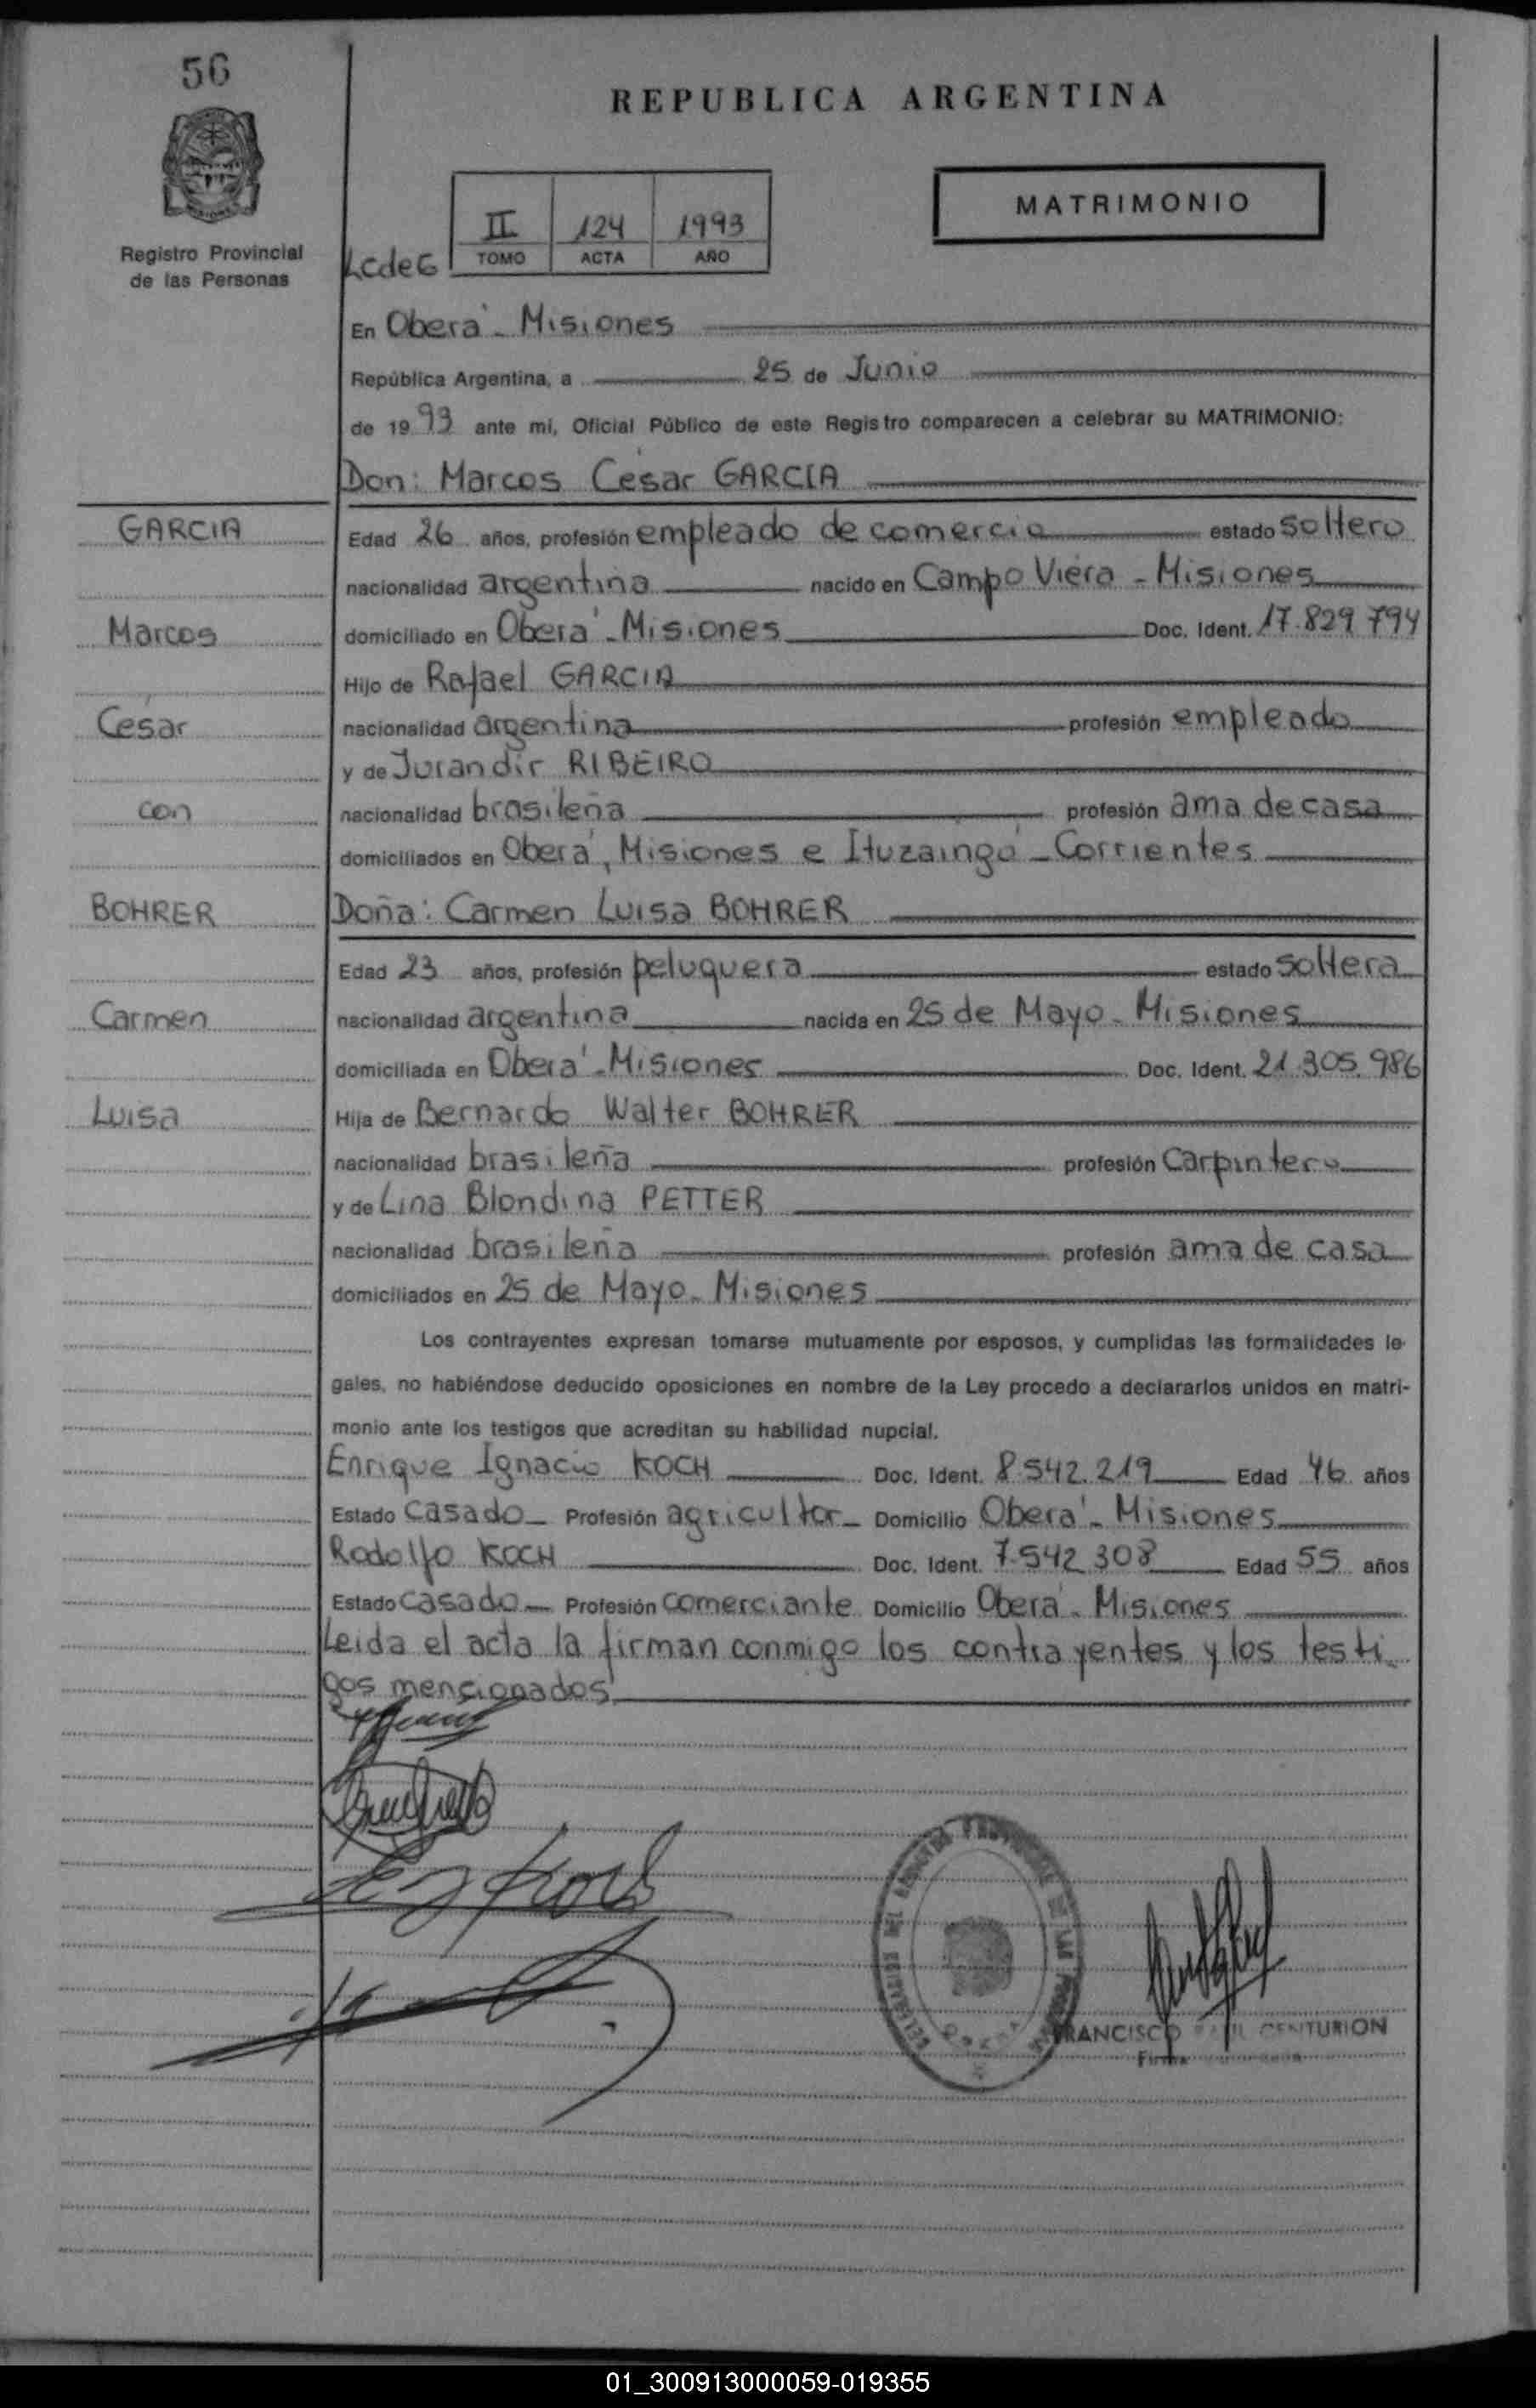 56
REPUBLICA ARGENTINA
MATRIMONIO
II 124 1993
TOMO ACTA AÑO
Registro Provincial
de las Personas
LCdeG
En Oberá - Misiones
República Argentina, a 25 de Junio
de 1993 ante mi, Oficial Público de este Registro comparecen a celebrar su MATRIMONIO:
Don: Marcos César GARCIA
GARCIA
Edad 26 años, profesión empleado de comercio estado soltero
nacionalidad argentina nacido en Campo Viera - Misiones
Marcos
domiciliado en Oberá - Misiones Doc. Ident. 17.829.794
Hijo de Rafael GARCIA
César
nacionalidad argentina profesión empleado
y de Jurandir RIBEIRO
con
nacionalidad brasileña profesión ama de casa
domiciliados en Oberá, Misiones e Ituzaingó - Corrientes
BOHRER
Doña: Carmen Luisa BOHRER
Edad 23 años, profesión peluquera estado soltera
Carmen
nacionalidad argentina nacida en 25 de Mayo - Misiones
domiciliada en Oberá - Misiones Doc. Ident. 21.305.986
Luisa
Hija de Bernardo Walter BOHRER
nacionalidad brasileña profesión Carpintero
y de Lina Blondina PETTER
nacionalidad brasileña profesión ama de casa
domiciliados en 25 de Mayo - Misiones
Los contrayentes expresan tomarse mutuamente por esposos, y cumplidas las formalidades le-
gales, no habiéndose deducido oposiciones en nombre de la Ley procedo a declararlos unidos en matri-
monio ante los testigos que acreditan su habilidad nupcial.
Enrique Ignacio KOCH Doc. Ident. 8.542.219 Edad 46 años
Estado casado - Profesión agricultor - Domicilio Oberá - Misiones
Rodolfo KOCH Doc. Ident. 7.542.308 Edad 55 años
Estado casado - Profesión comerciante Domicilio Oberá - Misiones
Leida el acta la firman conmigo los contrayentes y los testi-
gos mencionados
FRANCISCO CENTURION
01_300913000059-019355